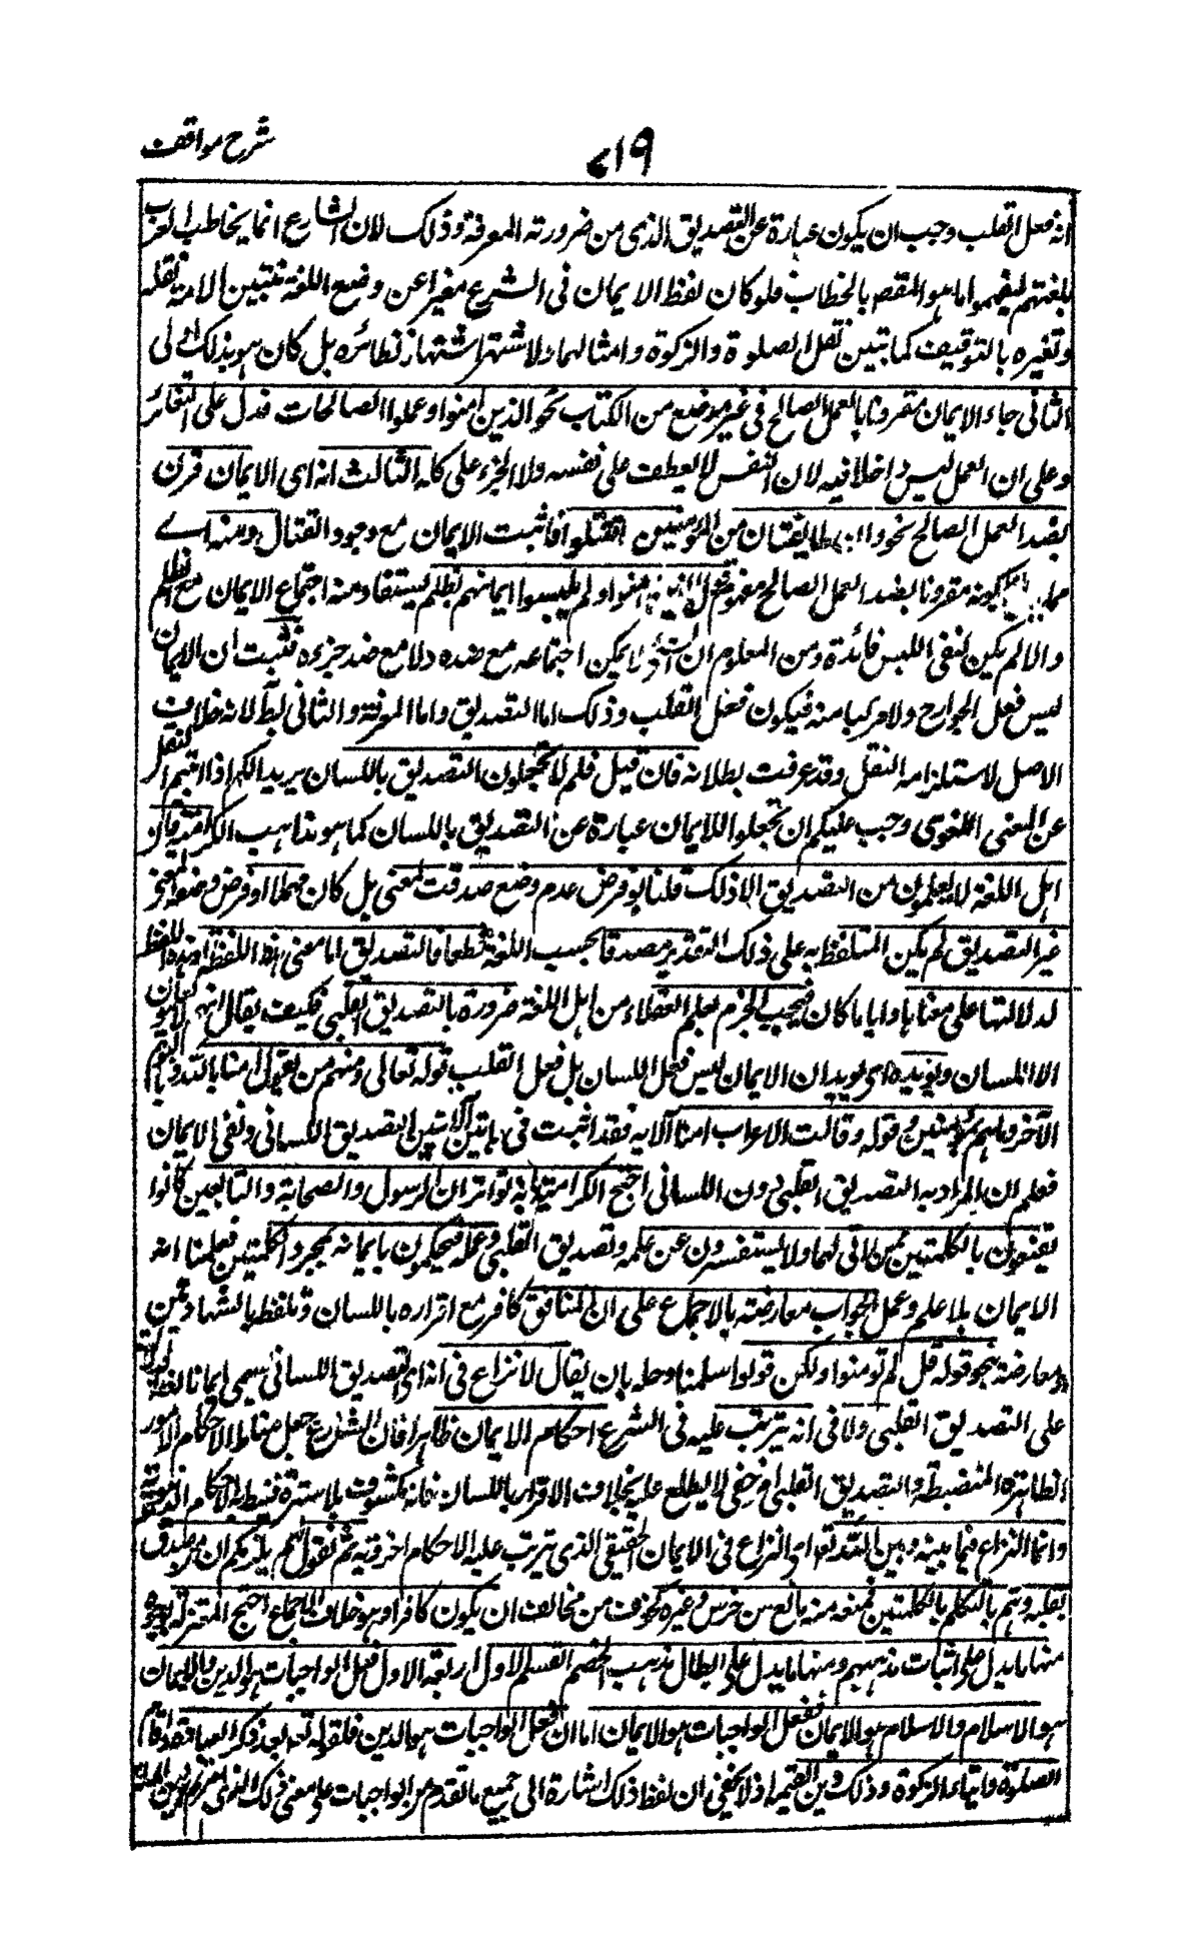 شرح مواقف
٧١٩
انه فعل القلب وجب ان يكون عبارة عن التصديق الذى من ضرورته المعرفة وذلك لان الشارع انما يخاطب العرب
بلغتهم ليفهموا ما هو المقصود بالخطاب فلو كان لفظ الايمان فى الشرع مغيرا عن وضع اللغة لتبين للامة نقله
وتغيره بالتوقيف كما تبين نقل الصلوة والزكوة وامثالهما ولاشتهر اشتهار نظائره بل كان هو بذلك اولى
الثانى جاء الايمان مقرونا بالعمل الصالح فى غير موضع من الكتاب نحو الذين امنوا وعملوا الصالحات فدل على التغائر
وعلى ان العمل ليس داخلا فيه لان النفس لا يعطف على نفسه ولا الجزء على كله الثالث انه اى الايمان قرن
بضد العمل الصالح نحو وان طايفتان من المؤمنين اقتتلوا فاثبت الايمان مع وجود القتال ومنه اے
كونه مقرونا بضد العمل الصالح مفهوم قوله الذين امنوا ولم يلبسوا ايمانهم بظلم يستفاد منه اجتماع الايمان مع الظلم
والا لم يكن لنفى اللبس فائدة ومن المعلوم ان الشئ لا يمكن اجتماعه مع ضده ولا مع ضد جزءه فثبت ان الايمان
ليس فعل الجوارح ولا مركبا منه فيكون فعل القلب وذلك اما التصديق واما المعرفة والثانى بط لانه خلاف
الاصل لاستلزامه النقل وقد عرفت بطلانه فان قيل فلم لا تجعلون التصديق باللسان يريد انكم اذا لم النقل
عن المعنى اللغوى وجب عليكم ان تجعلوا الايمان عبارة عن التصديق باللسان كما هو مذهب الكرامية فان
اهل اللغة لا يعلمون من التصديق الا ذلك قلنا لو فرض عدم وضع صدقت لمعنى بل كان مهملا او فرض وضعه لمعنى
غير التصديق لم يكن المتلفظ به على ذلك التقدير مصدقا بحسب اللغة قطعا فالتصديق اما معنى هذه اللفظة او هذه اللفظة
لدلالتها على معناها وايا ما كان فيجب الجزم بعلم العقلاء من اهل اللغة ضرورة بالتصديق القلبى فكيف يقال انهم لا يعلمون
الا اللسان ويؤيده اى يؤيد ان الايمان ليس فعل اللسان بل فعل القلب قوله تعالى ومنهم من يقول امنا بالله وباليوم
الآخر وما هم بمؤمنين وقوله وقالت الاعراب امنا الاية فقد اثبت فى هاتين الآيتين التصديق اللسانى ونفى الايمان
فعلم ان المراد به التصديق القلبى دون اللسانى احتج الكرامية بانه تواتر ان الرسول والصحابة والتابعين كانوا
يقنعون بالكلمتين ممن اتى بهما ولا يستفسرون عن علمه وتصديق القلبى وعمله فيحكمون بايمانه بمجرد الكلمتين فعلمنا انه
الايمان بلا علم وعمل الجواب معارضته بالاجماع على ان المنافق كافر مع اقراره باللسان وتلفظه بالشهادتين
ومعارضة بنحو قوله قل لم تؤمنوا ولكن قولوا اسلمنا وحله بان يقال لا نزاع فى انه اى التصديق اللسانى يسمى ايمانا لغة لدلالته
على التصديق القلبى ولا فى انه يترتب عليه فى الشرع احكام الايمان ظاهرا فان الشارع جعل مناط الاحكام الامور
الظاهرة المنضبطة والتصديق القلبى امر خفى لا يطلع عليه بخلاف الاقرار باللسان فانه مكشوف بلا سترة فينيط به الاحكام الدنيوية
وانما النزاع فيما بينه وبين الله تعالى اى النزاع فى الايمان الحقيقى الذى يترتب عليه الاحكام اخروية ثم نقول لهم يلزمكم ان من صدق
بقلبه وهم بالتكلم بالكلمتين فمنعه منه مانع من خرس وغيره كخوف من مخالف ان يكون كافرا وهو خلاف الاجماع احتج المعتزلة بوجوه
منها ما يدل على اثبات مذهبهم ومنها ما يدل على ابطال مذهب الخصم القسم الاول اربعة الاول فعل الواجبات هو الدين والايمان
هو الاسلام والاسلام هو الايمان ففعل الواجبات هو الايمان اما ان فعل الواجبات هو الدين فلقوله تعالى بعد ذكر العبادة واقام
الصلوة وايتاء الزكوة وذلك دين القيمة اذ لا يخفى ان لفظ ذلك اشارة الى جميع ما تقدم من الواجبات على معنى ذلك الذى